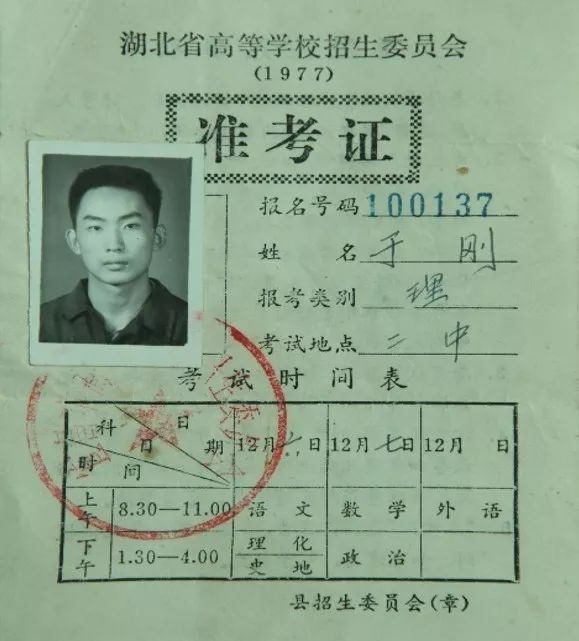 湖北省高等学校招生委员会
(1977)
准考证
报名号码 100137
姓名 于刚
报考类别 理
考试地点 二中
考试时间表
科目 日期 时间 12月六日 12月七日 12月 日
上午 8.30—11.00 语文 数学 外语
下午 1.30—4.00 理化 史地 政治
县招生委员会(章)